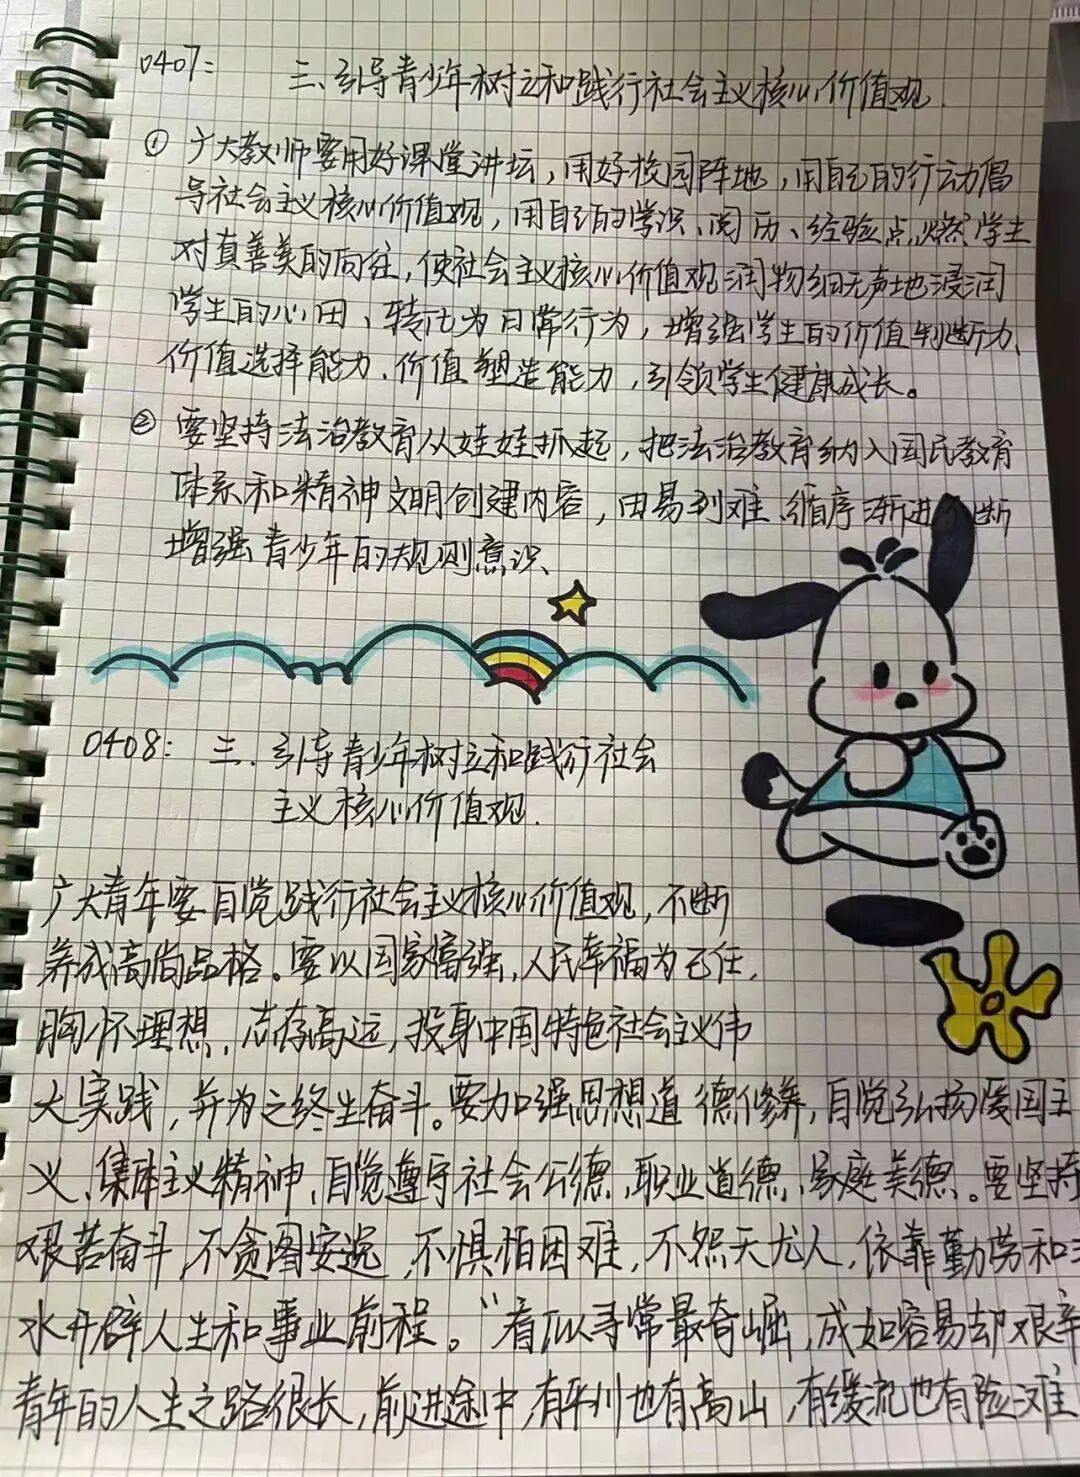 0407: 三、引导青少年树立和践行社会主义核心价值观.
① 广大教师要用好课堂讲坛，用好校园阵地，用自己的行动倡
导社会主义核心价值观，用自己的学识、阅历、经验点燃学生
对真善美的向往，使社会主义核心价值观润物细无声地浸润
学生的心田、转化为日常行为，增强学生的价值判断力、
价值选择能力、价值塑造能力，引领学生健康成长。
② 要坚持法治教育从娃娃抓起，把法治教育纳入国民教育
体系和精神文明创建内容，由易到难、循序渐进不断
增强青少年的规则意识、
0408: 三、引导青少年树立和践行社会
主义核心价值观.
广大青年要自觉践行社会主义核心价值观，不断
养成高尚品格。要以国家富强，人民幸福为己任，
胸怀理想，志存高远，投身中国特色社会主义伟
大实践，并为之终生奋斗。要加强思想道德修养，自觉弘扬爱国主
义、集体主义精神，自觉遵守社会公德，职业道德，家庭美德。要坚持
艰苦奋斗，不贪图安逸，不惧怕困难，不怨天尤人，依靠勤劳和
水开辟人生和事业前程。“看似寻常最奇崛，成如容易却艰辛
青年的人生之路很长，前进途中，有平川也有高山，有缓流也有险滩